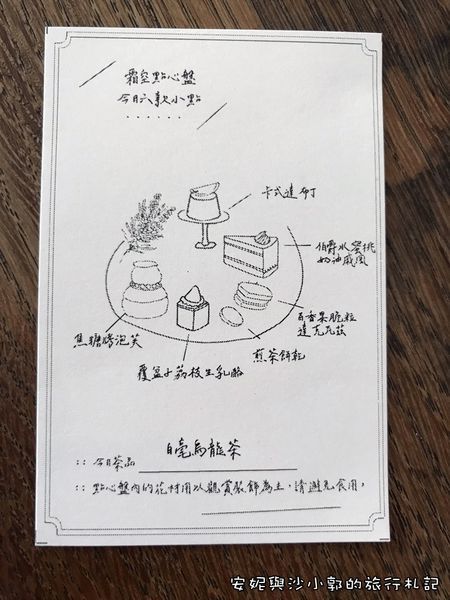 霜空點心盤
今日六款小點
......
卡式達布丁
伯爵水蜜桃
奶油戚風
百香果脆粒
達克瓦茲
煎茶餅乾
覆盆子荔枝生乳酪
焦糖烤泡芙
白毫烏龍茶
:: 今日茶品
:: 點心盤內的花材用以觀賞裝飾為主,請避免食用,
安妮與沙小郭的旅行札記